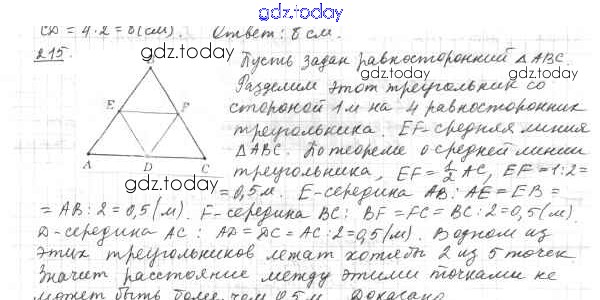 gdz.today
СД = 4·2 = 8 (см). Ответ: 8 см.
215.
gdz.today
gdz.today
gdz.today
B
E
F
A
D
C
Пусть задан равносторонний △ABC.
Разделим этот треугольник со
стороной 1м на 4 равносторонних
треугольника. EF-средняя линия
△ABC. По теореме о средней линии
треугольника, EF = 1/2 AC, EF = 1:2 =
= 0,5м. E-середина AB: AE = EB =
= AB : 2 = 0,5 (м). F-середина BC: BF = FC = BC : 2 = 0,5 (м).
D-середина AC: AD = DC = AC : 2 = 0,5 (м). В одном из
этих треугольников лежат хотябы 2 из 5 точек.
Значит расстояние между этими точками не
может быть более чем 0,5 м. Доказано.
gdz.today
gdz.today
gdz.today